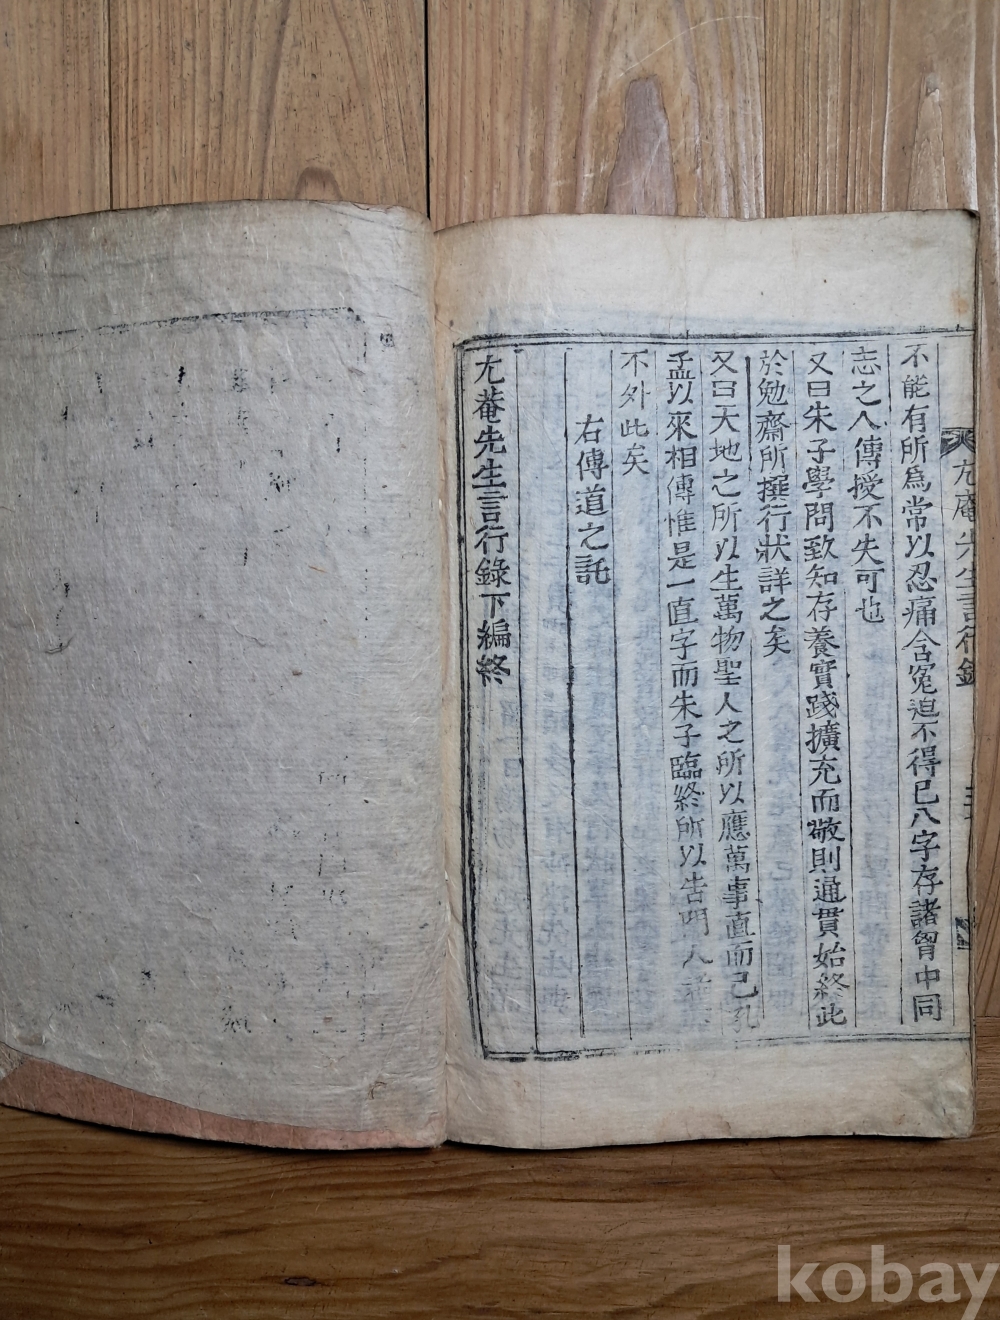 尤庵先生言行錄
不能有所爲常以忍痛含冤迫不得已八字存諸胷中同
志之人傳授不失可也
又曰朱子學問致知存養實踐擴充而敬則通貫始終此
於勉齋所撰行狀詳之矣
又曰天地之所以生萬物聖人之所以應萬事直而已孔
孟以來相傳惟是一直字而朱子臨終所以告門人
不外此矣
右傳道之託
尤菴先生言行錄下編終
kobay